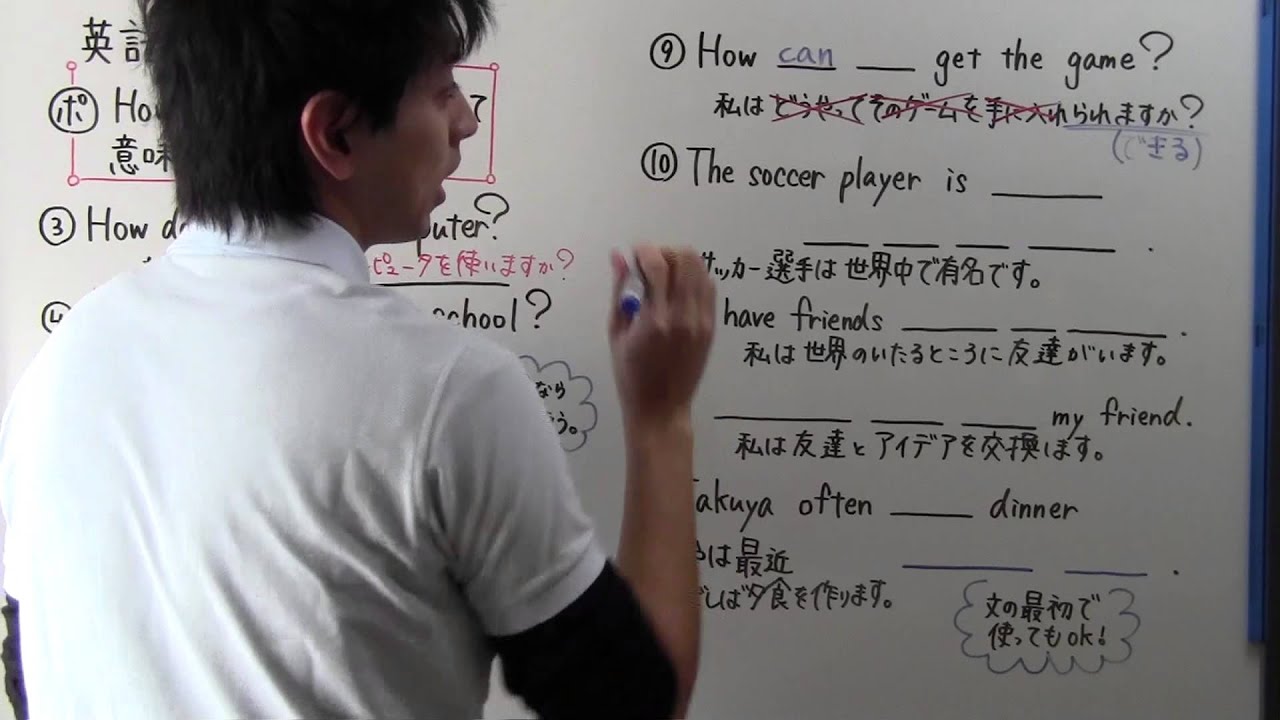 英語
ポ How て
意味
③ How do puter?
ピュータを使いますか?
④ school?
なら
う。
⑨ How can ___ get the game?
私はどうやってそのゲームを手に入れられますか?
(できる)
⑩ The soccer player is ___
___ ___ ___ ___.
サッカー選手は世界中で有名です。
have friends ___ ___ ___.
私は世界のいたるところに友達がいます。
___ ___ ___ my friend.
私は友達とアイデアを交換します。
Takuya often ___ dinner
___ ___.
は最近
しば夕食を作ります。
文の最初で
使ってもOK!